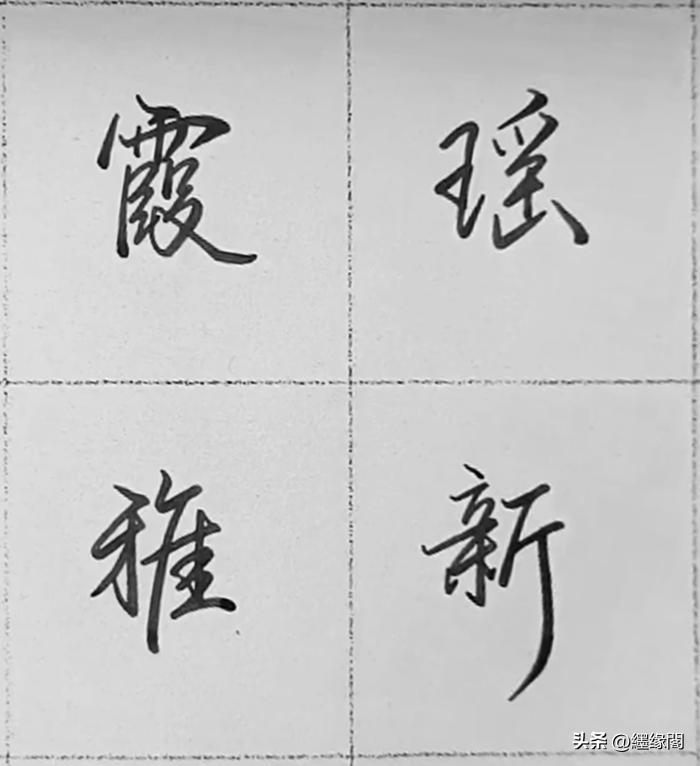 霞 瑶
雅 新
头条 @纆缘閣